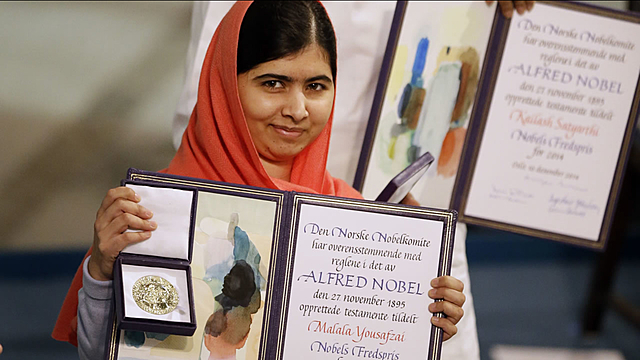 Den Norske Nobelkomite
har overensstemmende med
reglene i det av
ALFRED NOBEL
den 27. november 1895
opprettede testamente tildelt
Malala Yousafzai
Nobels Fredspris
Den Norske Nobelkomite
har overensstemmende med
reglene i det av
ALFRED NOBEL
den 27. november 1895
opprettede testamente tildelt
Kailash Satyarthi
Nobels Fredspris
for 2014
Oslo, 10. desember 2014